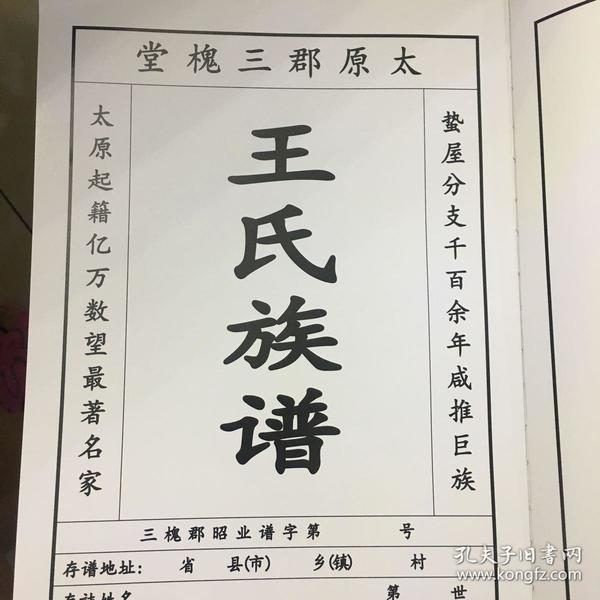 太原郡三槐堂
蛰屋分支千百余年咸推巨族
王氏族谱
太原起籍亿万数望最著名家
三槐郡昭业谱字第 号
存谱地址： 省 县(市) 乡(镇) 村
存谱姓名 第 世
孔夫子旧书网
www.kongfz.com